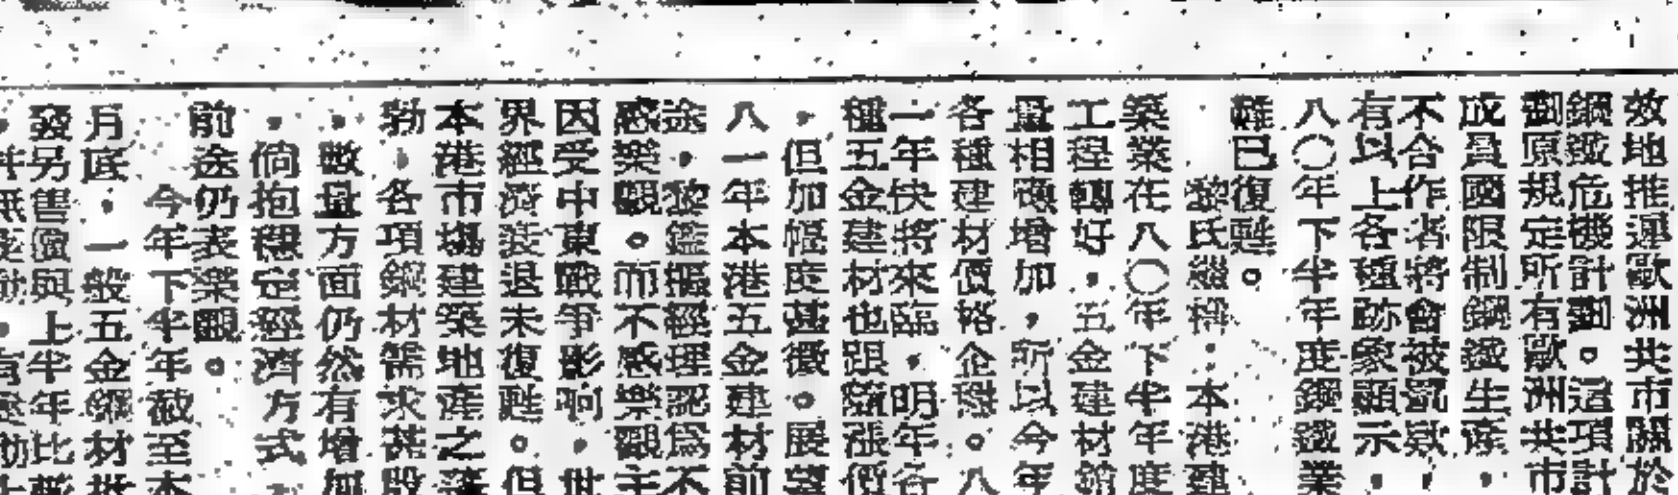 效地推運歐洲共市關於
鋼鐵危機計劃。這項計
劃原規定所有歐洲共市
成員國限制鋼鐵生產，
不合作者將會被罰款，
有以上各種跡象顯示，
八〇年下半年度鋼鐵業
難已復甦。
黎氏繼稱：本港建
築業在八〇年下半年度
工程轉好，五金建材銷
量相應增加，所以今年
各種建材價格企穩。八
一年快將來臨，明年各
種五金建材也跟隨漲價
，但加幅度甚微。展望
八一年本港五金建材前
途，黎鑑樞經理認為不
感樂觀。而不感樂觀主
因受中東戰爭影响，世
界經濟衰退未復甦。但
本港市場建築地產之蓬
勃，各項鋼材需求甚殷
，數量方面仍然有增加
，倘抱穩定經濟方式，
前途仍表樂觀。
今年下半年截至本
月底，一般五金鋼材批
發另售價與上半年比較